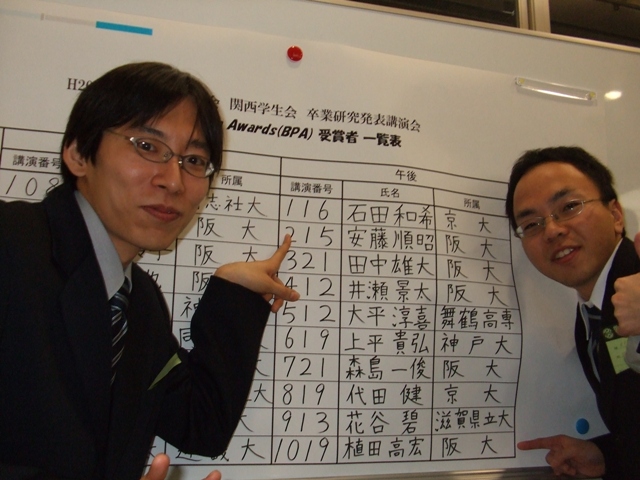 H20
関西学生会 卒業研究発表講演会
Awards(BPA) 受賞者 一覧表
午後
講演番号 所属 講演番号 氏名 所属
108 志社大 116 石田和希 京大
阪大 215 安藤順昭 阪大
阪 321 田中雄大 阪大
412 井瀬景太 阪大
512 大平淳喜 舞鶴高専
619 上平貴弘 神戸大
721 森島一俊 阪大
大 819 代田健 京大
大 913 花谷碧 滋賀県立大
大 1019 植田高宏 阪大